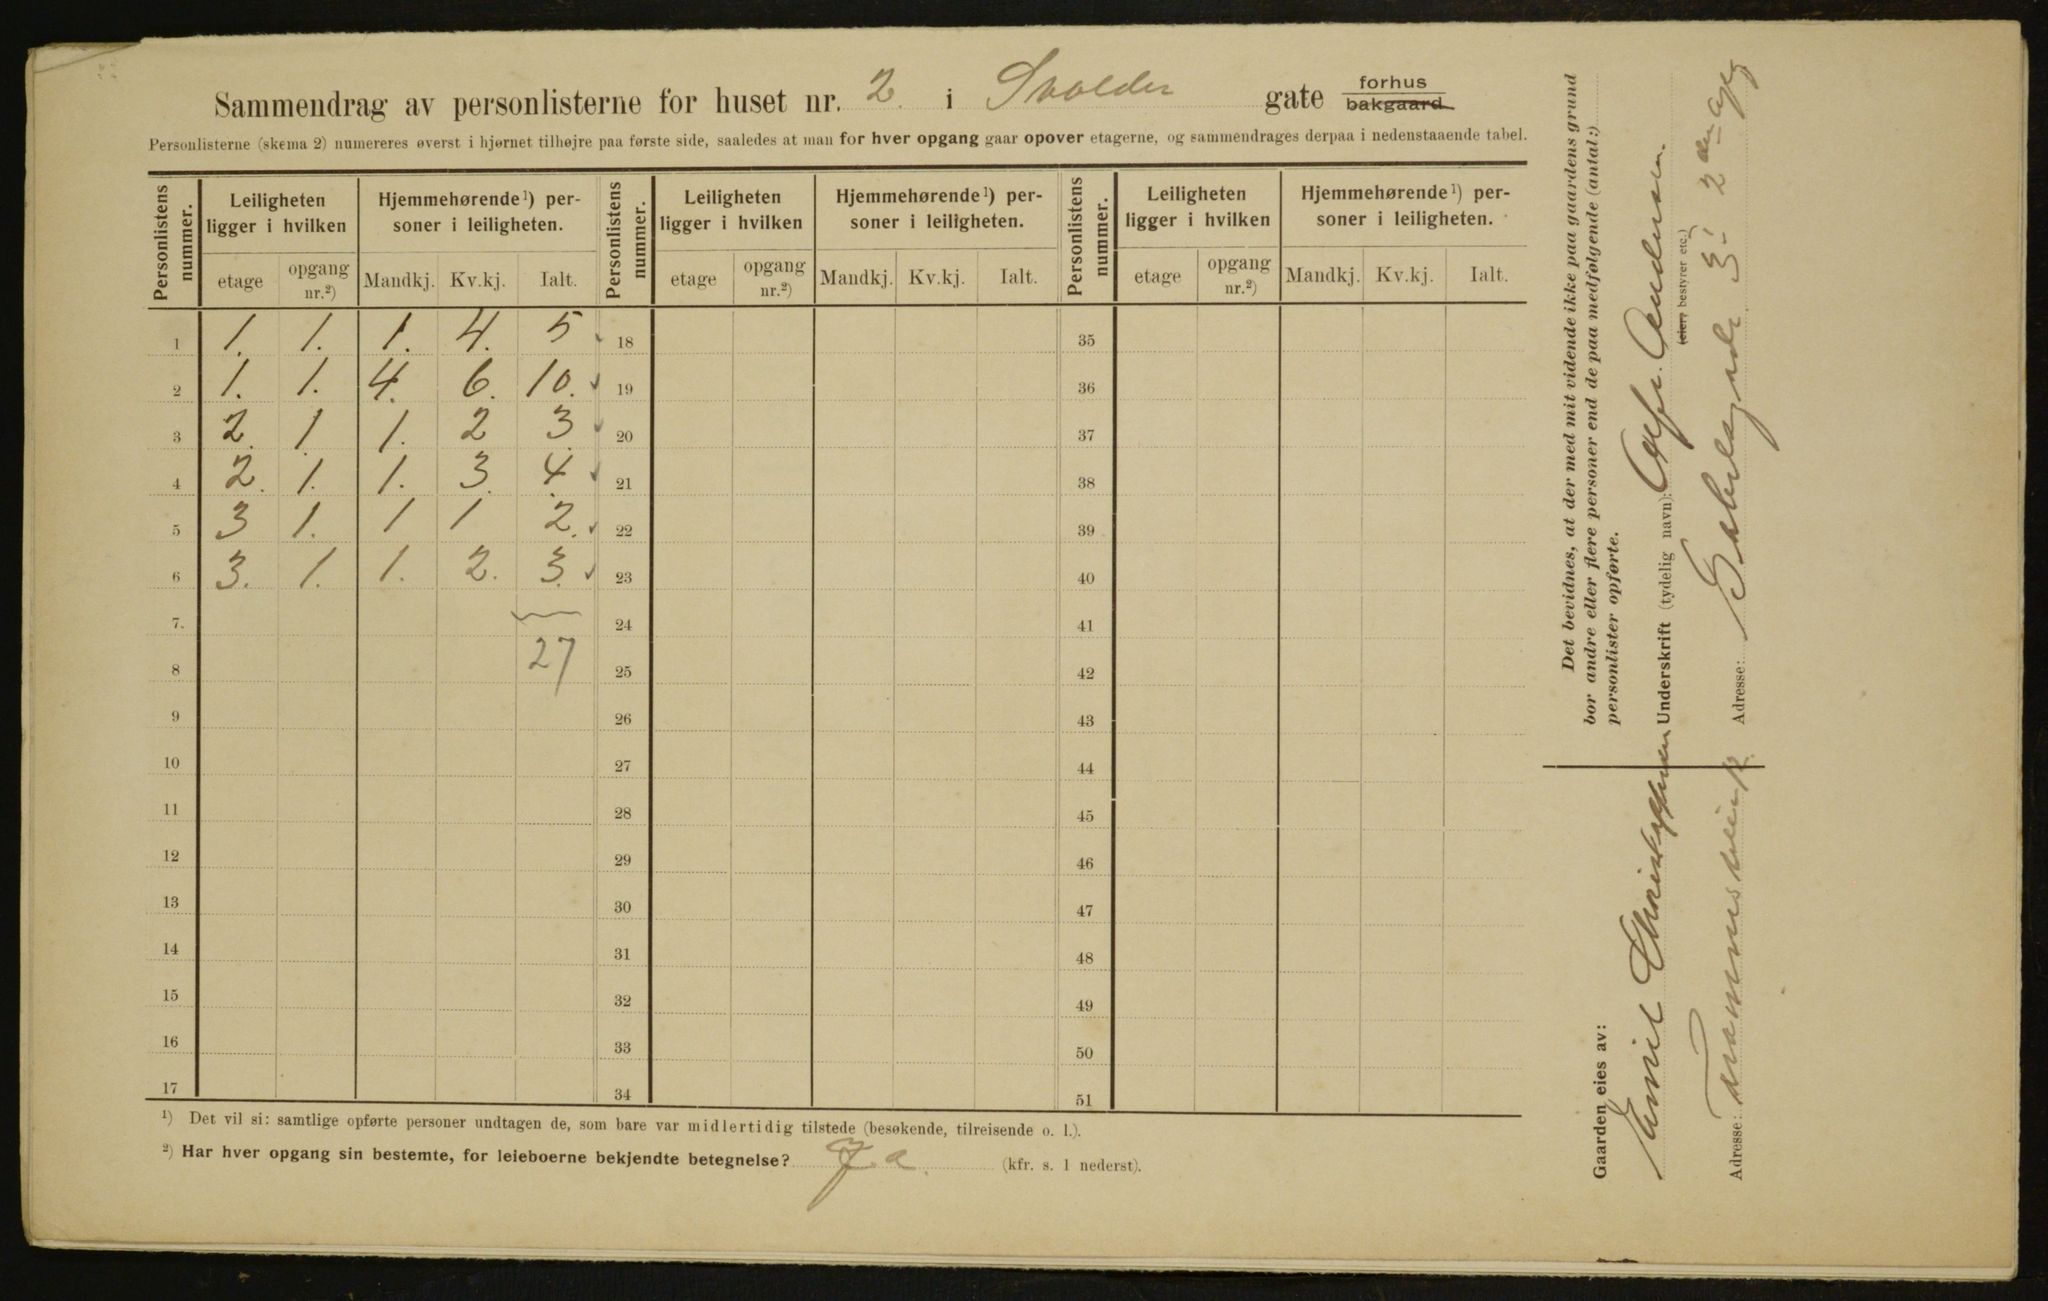 Sammendrag av personlisterne for huset nr. 2. i Svolder gate forhus bakgaard.
Personlisterne (skema 2) numereres øverst i hjørnet tilhøjre paa første side, saaledes at man for hver opgang gaar opover etagerne, og sammendrages derpaa i nedenstaaende tabel.
Personlistens nummer. Leiligheten ligger i hvilken Hjemmehørende ¹) personer i leiligheten. Personlistens nummer. Leiligheten ligger i hvilken Hjemmehørende ¹) personer i leiligheten. Personlistens nummer. Leiligheten ligger i hvilken Hjemmehørende ¹) personer i leiligheten.
etage opgang nr.²) Mandkj. Kv.kj. Ialt. etage opgang nr.²) Mandkj. Kv.kj. Ialt. etage opgang nr.²) Mandkj. Kv.kj. Ialt.
1 1. 1. 1. 4. 5 18 35
2 1. 1. 4. 6. 10. 19 36
3 2. 1 1. 2 3 20 37
4 2. 1. 1. 3. 4 21 38
5 3 1. 1 1 2. 22 39
6 3. 1. 1. 2. 3. 23 40
7. 24 41
8 27 25 42
9 26 43
10 27 44
11 28 45
12 29 46
13 30 47
14 31 48
15 32 49
16 33 50
17 34 51
¹) Det vil si: samtlige opførte personer undtagen de, som bare var midlertidig tilstede (besøkende, tilreisende o. l.).
²) Har hver opgang sin bestemte, for leieboerne bekjendte betegnelse? Ja. (kfr. s. 1 nederst).
Det bevidnes, at der med mit vidende ikke paa gaardens grund
bor andre eller flere personer end de paa medfølgende (antal:)
personlister opførte.
Underskrift (tydelig navn): Andersen.
(eier, bestyrer etc.)
Adresse: 3. 2 den opg
Gaarden eies av:
Emil Christophersen
Adresse: